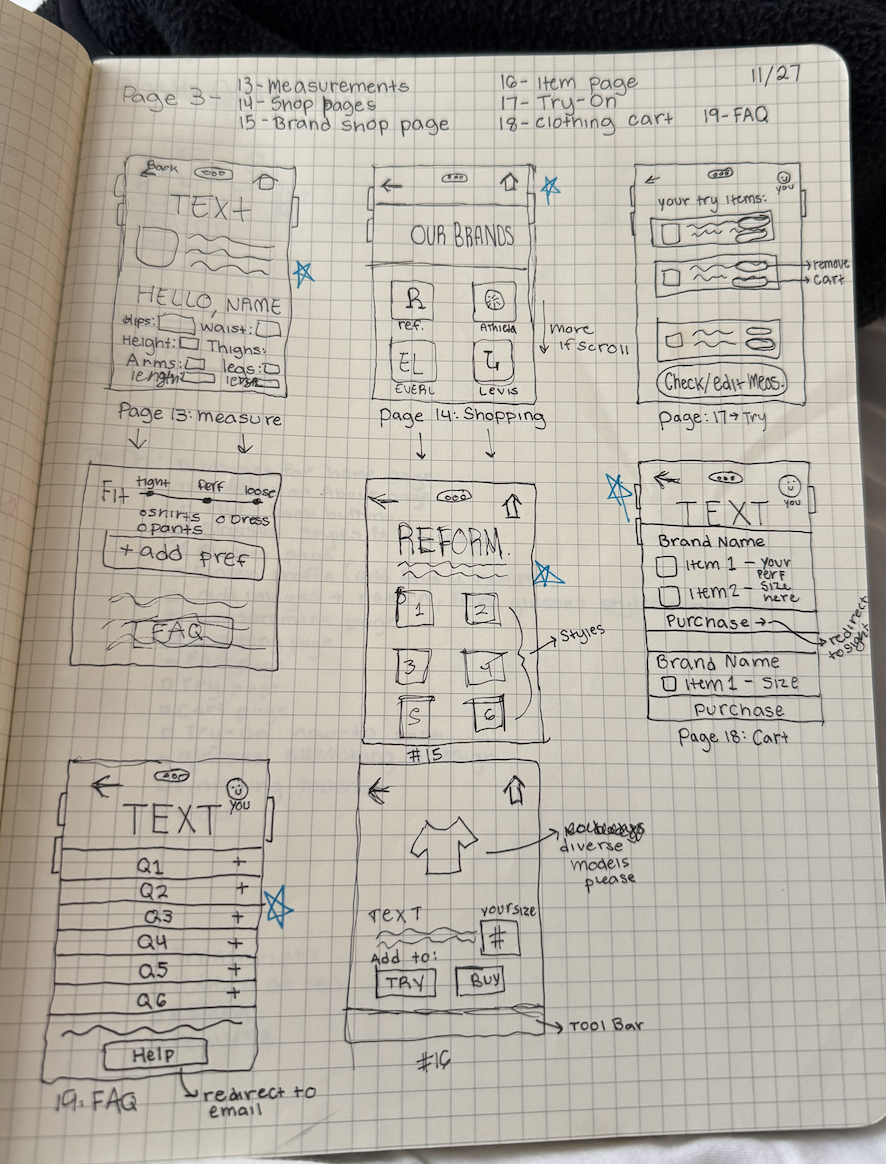 Page 3-
13-Measurements
14-Shop pages
15-Brand shop page
16-Item page
17-Try-On
18-Clothing cart
19-FAQ
11/27
Back
TEXT
HELLO, NAME
Hips:
Waist:
Height:
Thighs:
Arms:
legs:
length
Page 13: measure
OUR BRANDS
R
ref.
Athleta
EL
EVERL
L
LEVIS
more
if scroll
Page 14: Shopping
YOU
your try items:
remove
cart
Check/edit meas.
page: 17→Try
Fit
tight
perf
loose
shirts
Dress
pants
+ add pref
FAQ
REFORM.
1
2
3
4
5
6
styles
#15
YOU
TEXT
Brand Name
Item 1 - your
perf
Item 2 - size
here
Purchase →
redirect
to
Brand Name
Item 1 - size
Purchase
Page 18: Cart
YOU
TEXT
Q1 +
Q2 +
Q3 +
Q4 +
Q5 +
Q6 +
Help
redirect to
email
19: FAQ
diverse
models
please
TEXT
your size
#
Add to:
TRY
BUY
TOOL Bar
#16